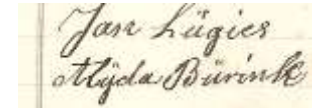 Jan Lügies
Alijda Bürink